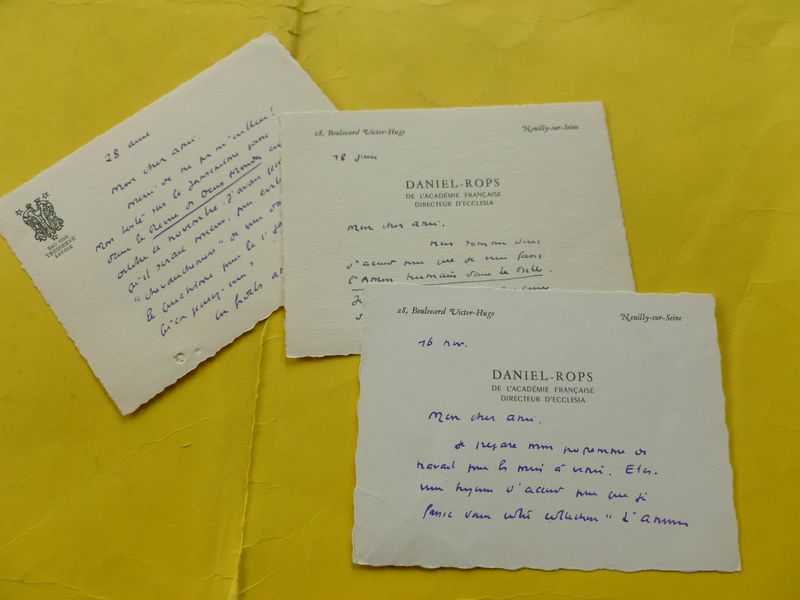 28 août
Mon cher ami.
Merci de ne pas m'oublier!
Mon texte sur le Jansénisme
dans la Revue des Deux Mondes
octobre et novembre. J'avais
qu'il serait
"chevauchement" de
le
Qu'en
EAU VIVE
TRESSERVE
SAVOIE
28, Boulevard Victor-Hugo Neuilly-sur-Seine
18 juin
DANIEL-ROPS
DE L'ACADÉMIE FRANÇAISE
DIRECTEUR D'ECCLESIA
Mon cher ami.
Nous sommes donc
d'accord pour que je vous fasse
l'Amour humain dans la Bible.
28, Boulevard Victor-Hugo Neuilly-sur-Seine
16 nov.
DANIEL-ROPS
DE L'ACADÉMIE FRANÇAISE
DIRECTEUR D'ECCLESIA
Mon cher ami.
Je prépare mon programme de
travail pour les mois à venir. Etes-
vous toujours d'accord pour que je
fasse dans votre collection "L'Amour